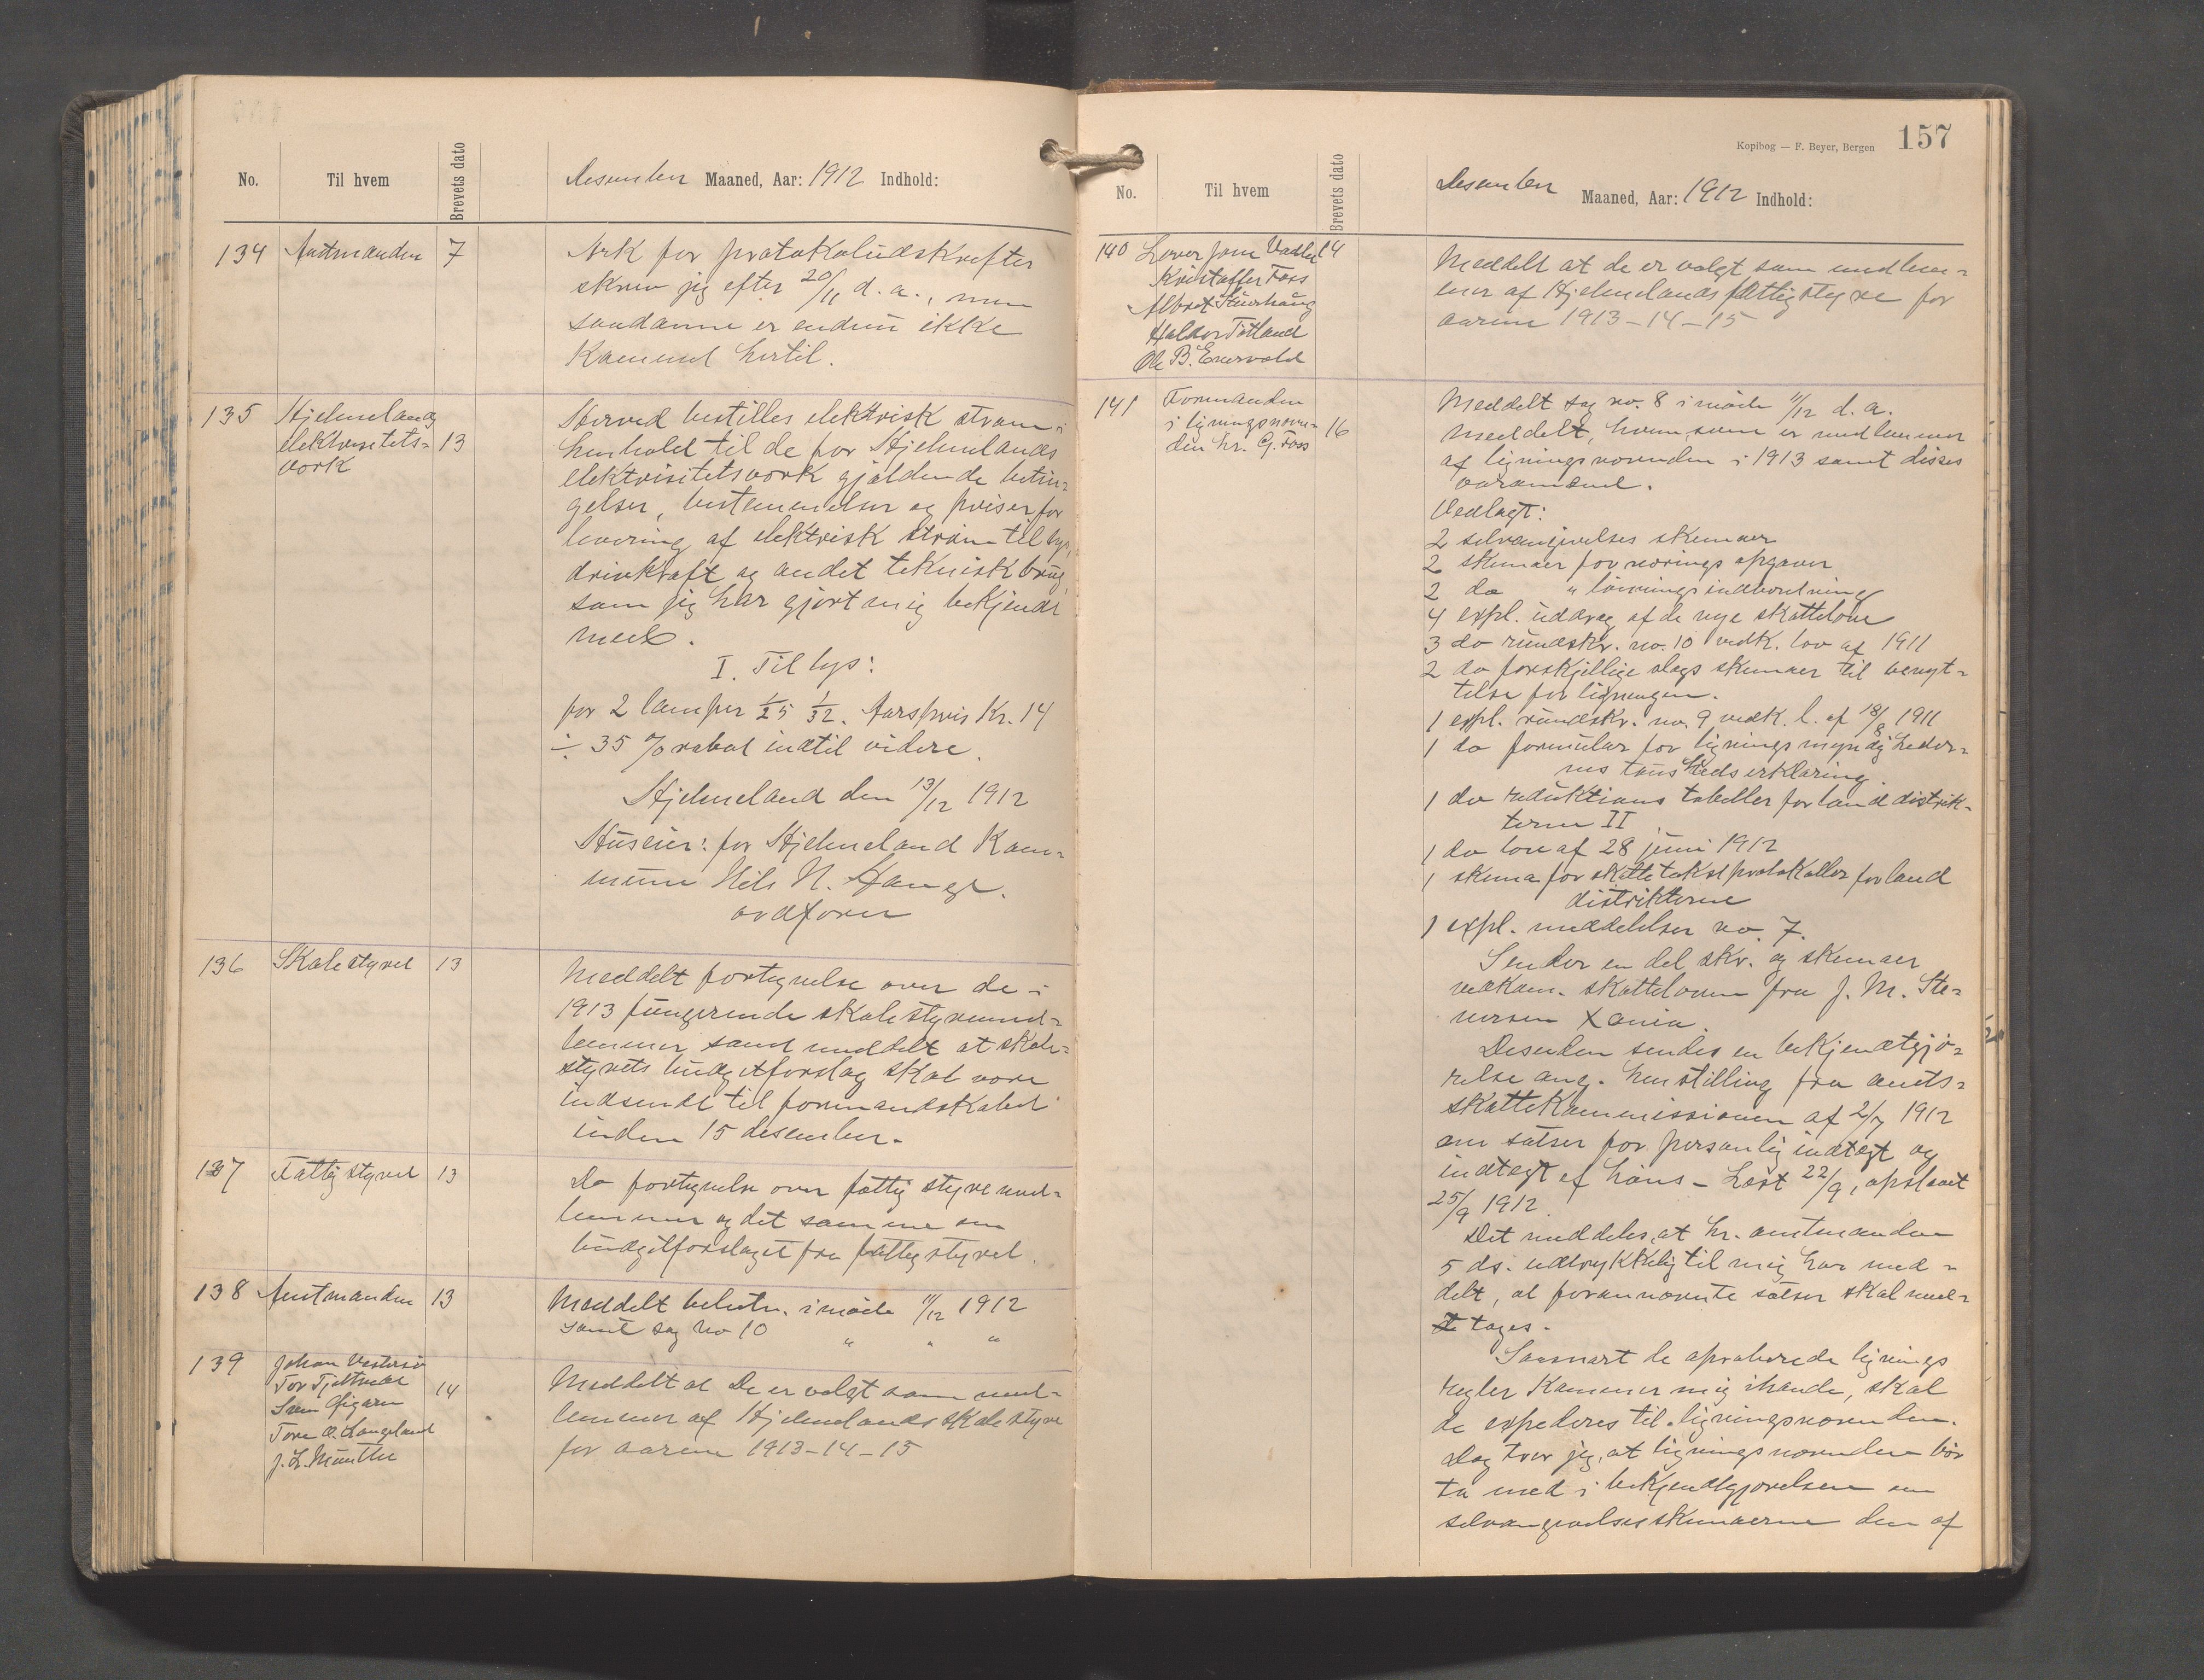 No. Til hvem Brevets dato Desember Maaned, Aar: 1912 Indhold:
134 Amtmanden 7 Ark for protokoludskrifter
skrev jeg efter 20/11 d. a., men
saadanne er endnu ikke
kommet hertil.
135 Hjelmelands elektrisitets- verk 13 Herved bestilles elektrisk strøm i
henhold til de for Hjelmelands
elektrisitetsverk gjældende betin-
gelser, bestemmelser og priser for
levering af elektrisk strøm til lys,
drivkraft og andet teknisk brug,
som jeg har gjort mig bekjendt
med.
I. Til lys:
for 2 lamper 1/25 1/32. Aarspris Kr. 14
÷ 35 % rabat indtil videre.
Hjelmeland den 13/12 1912
Huseier: for Hjelmeland Kom-
mune Nils N. Hauge.
ordfører
136 Skolestyret 13 Meddelt fortegnelse over de i
1913 fungerende skolestyremed-
lemmer samt meddelt at skole-
styrets budgetforslag skal være
indsendt til formandskabet
inden 15 desember.
137 Fattigstyret 13 Do fortegnelse over fattigstyremed-
lemmer og det samme om
budgetforslaget fra fattigstyret.
138 Amtmanden 13 Meddelt beslutn. i møde 11/12 1912
samt sag no 10 " " "
139 Johan
Tor
Sven
Tore O. Langeland
J. L. Munthe
14 Meddelt at De er valgt som med-
lemmer af Hjelmelands skolestyre
for aarene 1913-14-15
Kopibog — F. Beyer, Bergen 157
No. Til hvem Brevets dato Desember Maaned, Aar: 1912 Indhold:
140
Kristoffer Foss
Halder
Ole B.
14 Meddelt at de er valgt som medlem-
mer af Hjelmelands fattigstyre for
aarene 1913-14-15
141 Formanden
i ligningsnevn-
den hr. G. Foss
16 Meddelt sag no. 8 i møde 11/12 d. a.
Meddelt, hvem, som er medlemmer
af ligningsnevnden i 1913 samt disses
varamænd.
Vedlagt:
2 selvangivelses skemaer
2 skemaer for nærings opgaver
2 do " lønningsindberetning
4 expl. uddrag af de nye skattelove
3 do rundskr. no. 10 vedk. lov af 1911
2 do forskjellige slags skemaer til benyt-
telse for ligningen.
1 expl. rundskr. no. 9 vedk. l. af 18/8 1911
1 do formular for ligningsmyndigheder-
nes taushedserklæring.
1 do reduktions tabeller for landdistrik-
terne II
1 do lov af 28 juni 1912
1 skema for skattetakstprotokoller for land
distrikterne
1 expl. meddelelser no. 7.
Sender en del skr. og skemaer
vedkom. skatteloven fra J. M. Ste-
nersen Xania.
Desuden sendes en bekjendtgjø-
relse ang. henstilling fra amts-
skattekommissionen af 2/7 1912
om satser for personlig indtægt og
indtægt af havs- Læst 22/9, opslaaet
25/9 1912.
Det meddeles, at hr. amtmanden
5 ds. udtrykkelig til mig har med-
delt, at forannævnte satser skal med-
tages.
Saasnart de aproberede lignings
regler kommer mig ihænde, skal
de expederes til ligningsnevnden.
Dog tror jeg, at ligningsnevnden bør
ta med i bekjendtgjørelsen om
selvangivelsesskemaerne den af